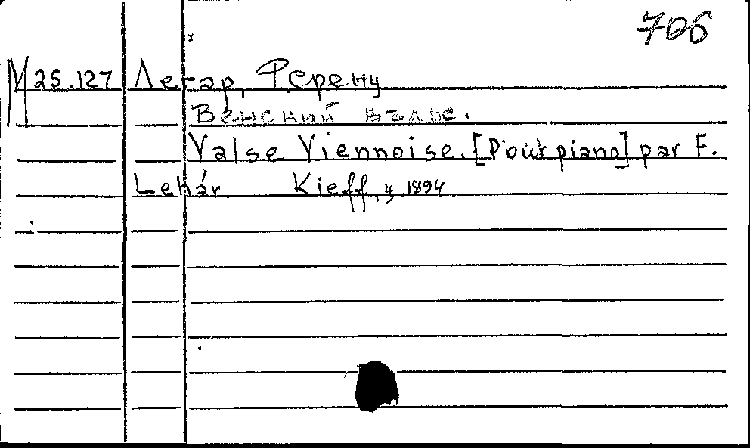 706
M 25.127 Легар, Ференц
Венский вальс.
Valse Viennoise. [Pour piano] par F.
Lehár Kieff, 1894